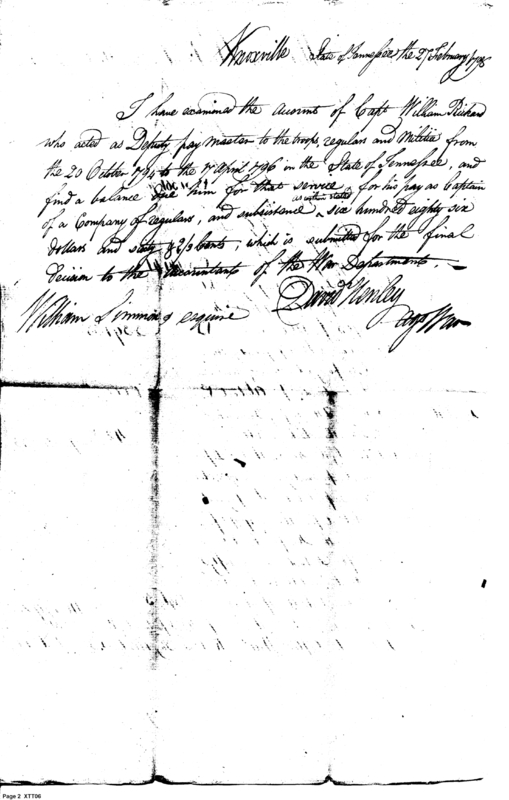 Knoxville State of Tennessee the 27 February 1798
I have examined the Account of Capt William Rickard
who acted as Deputy pay master to the troops, regulars and Militia from
the 20 October 1794 to the 7 April 1796 in the State of Tennessee, and
find a balance due him for that service, for his pay as Captain
as within stated
of a Company of regulars, and subsistence six hundred eighty six
dollars and sixty 2/3 Cents, which is submitted for the final
decision to the Accountant of the War Department.
David Henley
William Simmons esquire
Agt War
Page 2 XTT06